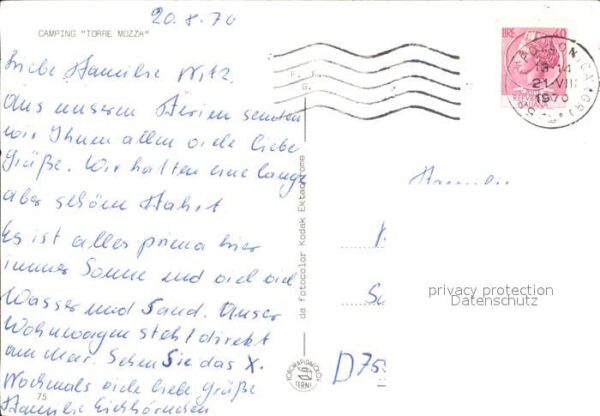 20.8.70
CAMPING "TORRE MOZZA"
Liebe Familie Witz.
Aus unseren Ferien senden
wir Ihnen allen viele liebe
Grüße. Wir hatten eine lange
aber schöne Fahrt.
Es ist alles prima hier
immer Sonne und viel viel
Wasser und Sand. Unser
Wohnwagen steht direkt
am Meer. Sehen Sie das X.
Nochmals viele liebe Grüße
Familie
75
da fotocolor Kodak Ektachrome
LIRE 40
21-VIII
1970
Familie
privacy protection
Datenschutz
D75
TERNI